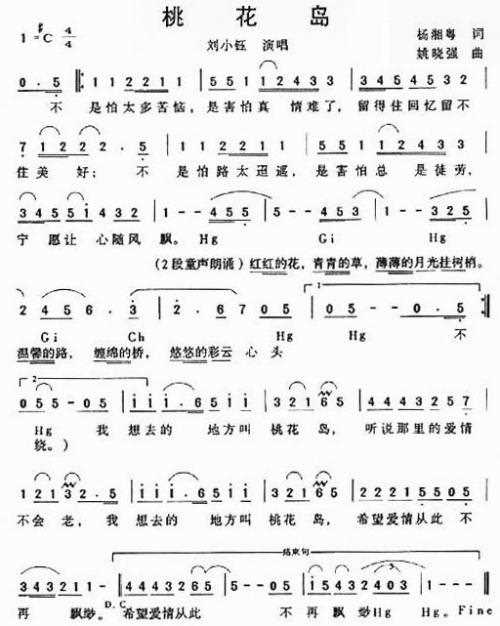 桃 花 岛
1=C 4/4
刘小钰 演唱
杨湘粤 词
姚晓强 曲
0·5 1122211 1233221 345 54532
不 是怕太多苦恼，是害怕真 情难了，留得住回忆留不
7 1222·5 1122211 5112433
住美好；不 是怕路太迢遥，是害怕总 是徒劳，
345551432 1--455 5--123 1--325
宁愿让 心随风 飘。 Hg Gi Hg
(2段童声朗诵) 红红的花，青青的草，薄薄的月光挂树梢。
2 456·3 2·67 05 0--0·5
Gi Ch Hg Hg 不
温馨的路，缠绵的桥，悠悠的彩云 心头
055-05 111·6511 321 65 4443257
Hg 我 想去的 地方叫 桃花 岛， 听说那里的爱情
绕。)
12132·5 111·6511 321 65 22221 5505
不会 老，我 想去的 地方叫 桃花 岛， 希望爱情从此 不
结束句
343211-- 444326 5 5 1543 2403 1--
再 飘缈。 希望爱情从此 不 再 飘 缈Hg Hg。Fine
D.C